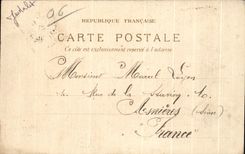 06
REPUBLIQUE FRANÇAISE
CARTE POSTALE
Ce côté est exclusivement réservé à l'adresse
Monsieur Marcel
Rue de la 10
Asnières (Seine)
France